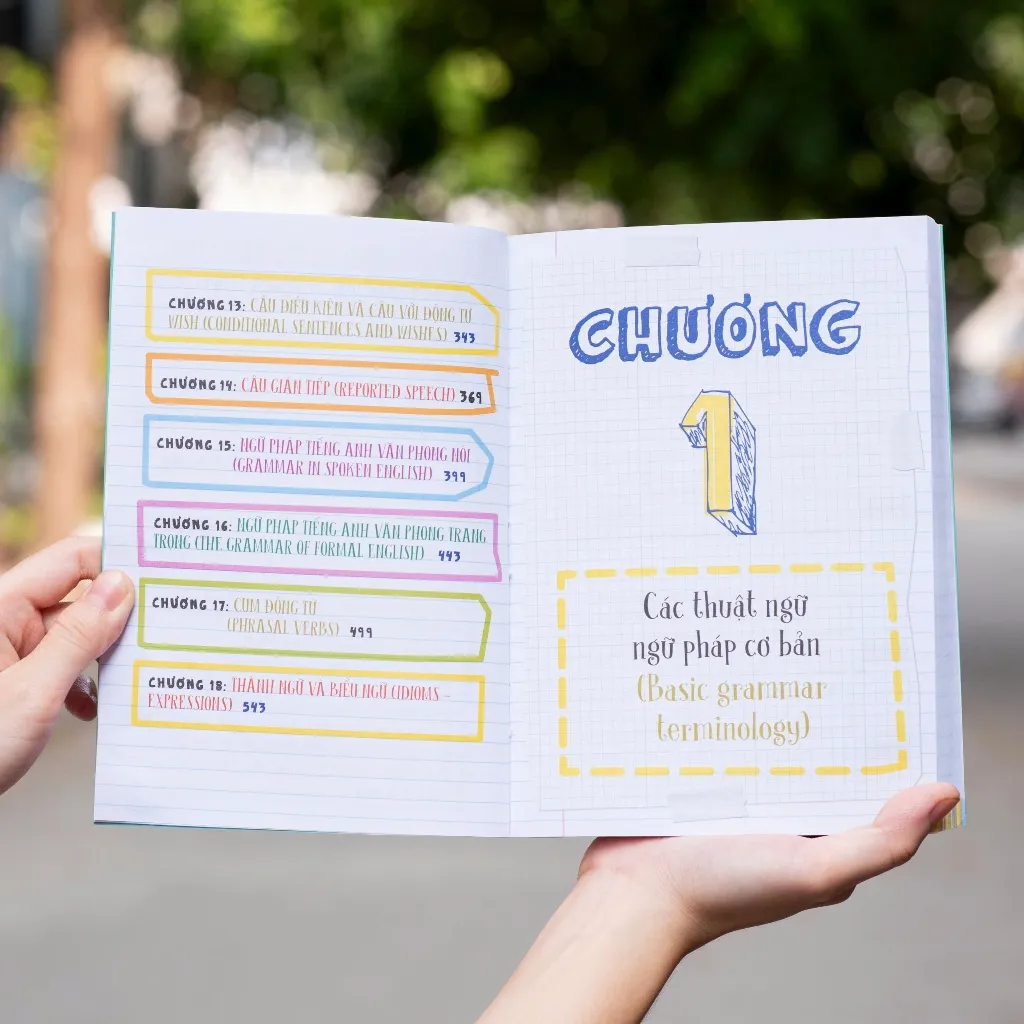 CHƯƠNG 13: CÂU ĐIỀU KIỆN VÀ CÂU VỚI ĐỘNG TỪ
WISH (CONDITIONAL SENTENCES AND WISHES) 343
CHƯƠNG 14: CÂU GIÁN TIẾP (REPORTED SPEECH) 369
CHƯƠNG 15: NGỮ PHÁP TIẾNG ANH VĂN PHONG NÓI
(GRAMMAR IN SPOKEN ENGLISH) 399
CHƯƠNG 16: NGỮ PHÁP TIẾNG ANH VĂN PHONG TRANG
TRỌNG (THE GRAMMAR OF FORMAL ENGLISH) 443
CHƯƠNG 17: CỤM ĐỘNG TỪ
(PHRASAL VERBS) 499
CHƯƠNG 18: THÀNH NGỮ VÀ BIỂU NGỮ (IDIOMS –
EXPRESSIONS) 543
CHƯƠNG
1
Các thuật ngữ
ngữ pháp cơ bản
(Basic grammar
terminology)